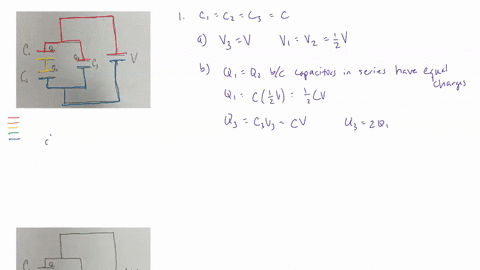 C₁ Q₁
C₂ Q₂ C₃ V
1. C₁ = C₂ = C₃ = C
a) V₃ = V V₁ = V₂ = ½V
b) Q₁ = Q₂ b/c capacitors in series have equal charges
Q₁ = C(½V) = ½CV
Q₃ = C₃V₃ = CV U₃ = 2Q₁